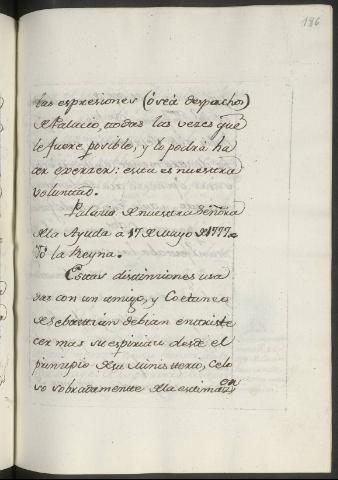 186
las espresiones (ó sea despachos)
de Palacio, todas las vezes que
le fuere posible, y lo podrá ha
cer exercer: esta es nuestra
voluntad.
Palacio de nuestra Señora
de la Ayuda á 17 de Mayo de 1777.
Yo la Reyna.
Estas distinciones usa
das con un amigo, y Coetaneo
de Sebastian debian entriste
cer mas su espiritu desde el
principio de su Ministerio, celo
so sobradamente de la estimaz.on